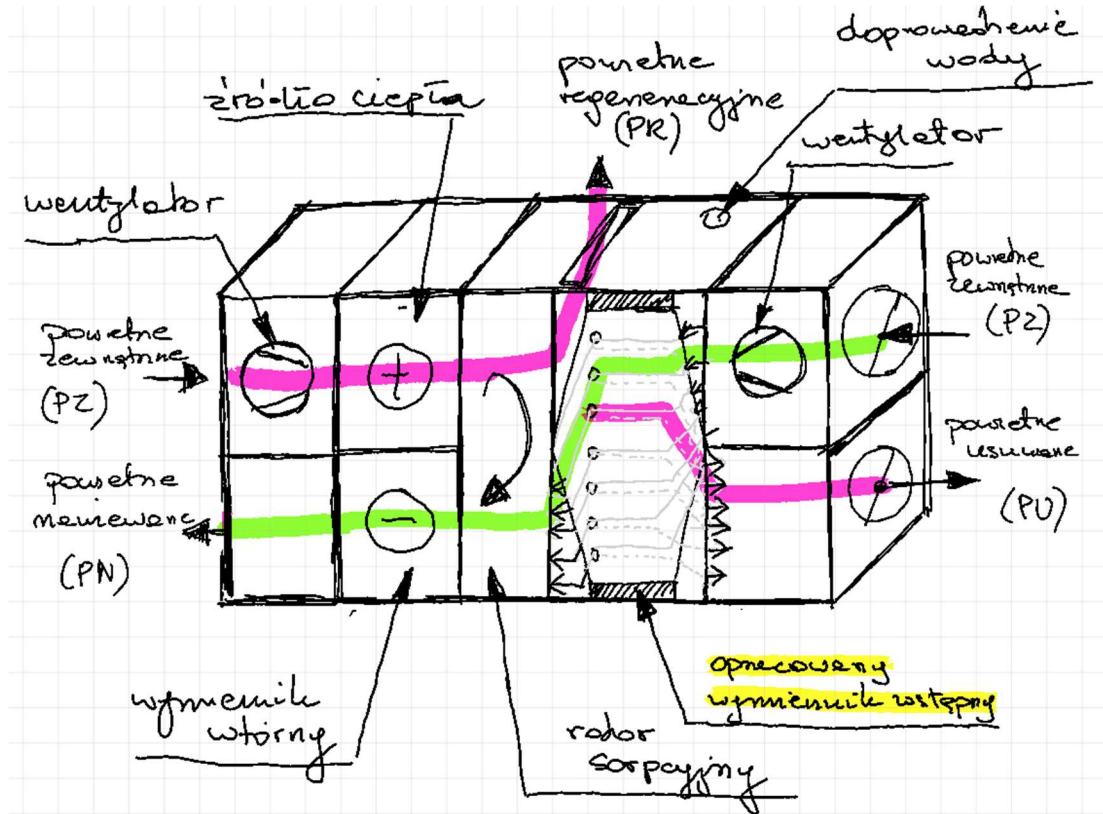 doprowadzenie
wody
powietrze
regeneracyjne
(PR)
źródło ciepła
wentylator
wentylator
powietrze
zewnętrzne
(PZ)
powietrze
zewnętrzne
(PZ)
powietrze
usuwane
(PU)
powietrze
nawiewane
(PN)
+
−
opracowany
wymiennik wstępny
wymiennik
wtórny
rotor
sorpcyjny